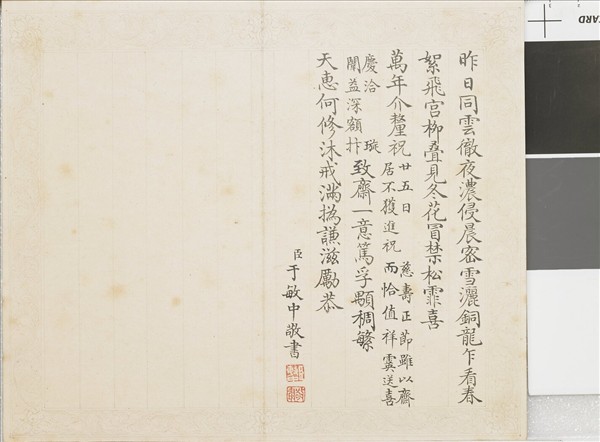 昨日同雲徹夜濃侵晨密雪灑銅龍乍看春
絮飛宮柳疊見冬花冒禁松霏喜
萬年介釐祝
廿五日慈壽正節雖以齋
居不獲進祝而恰值祥霙送喜
慶洽璇
闈益深額抃
致齋一意篤孚顒稠繁
天惠何修沐戒滿撝謙滋勵恭
臣于敏中敬書
CARD